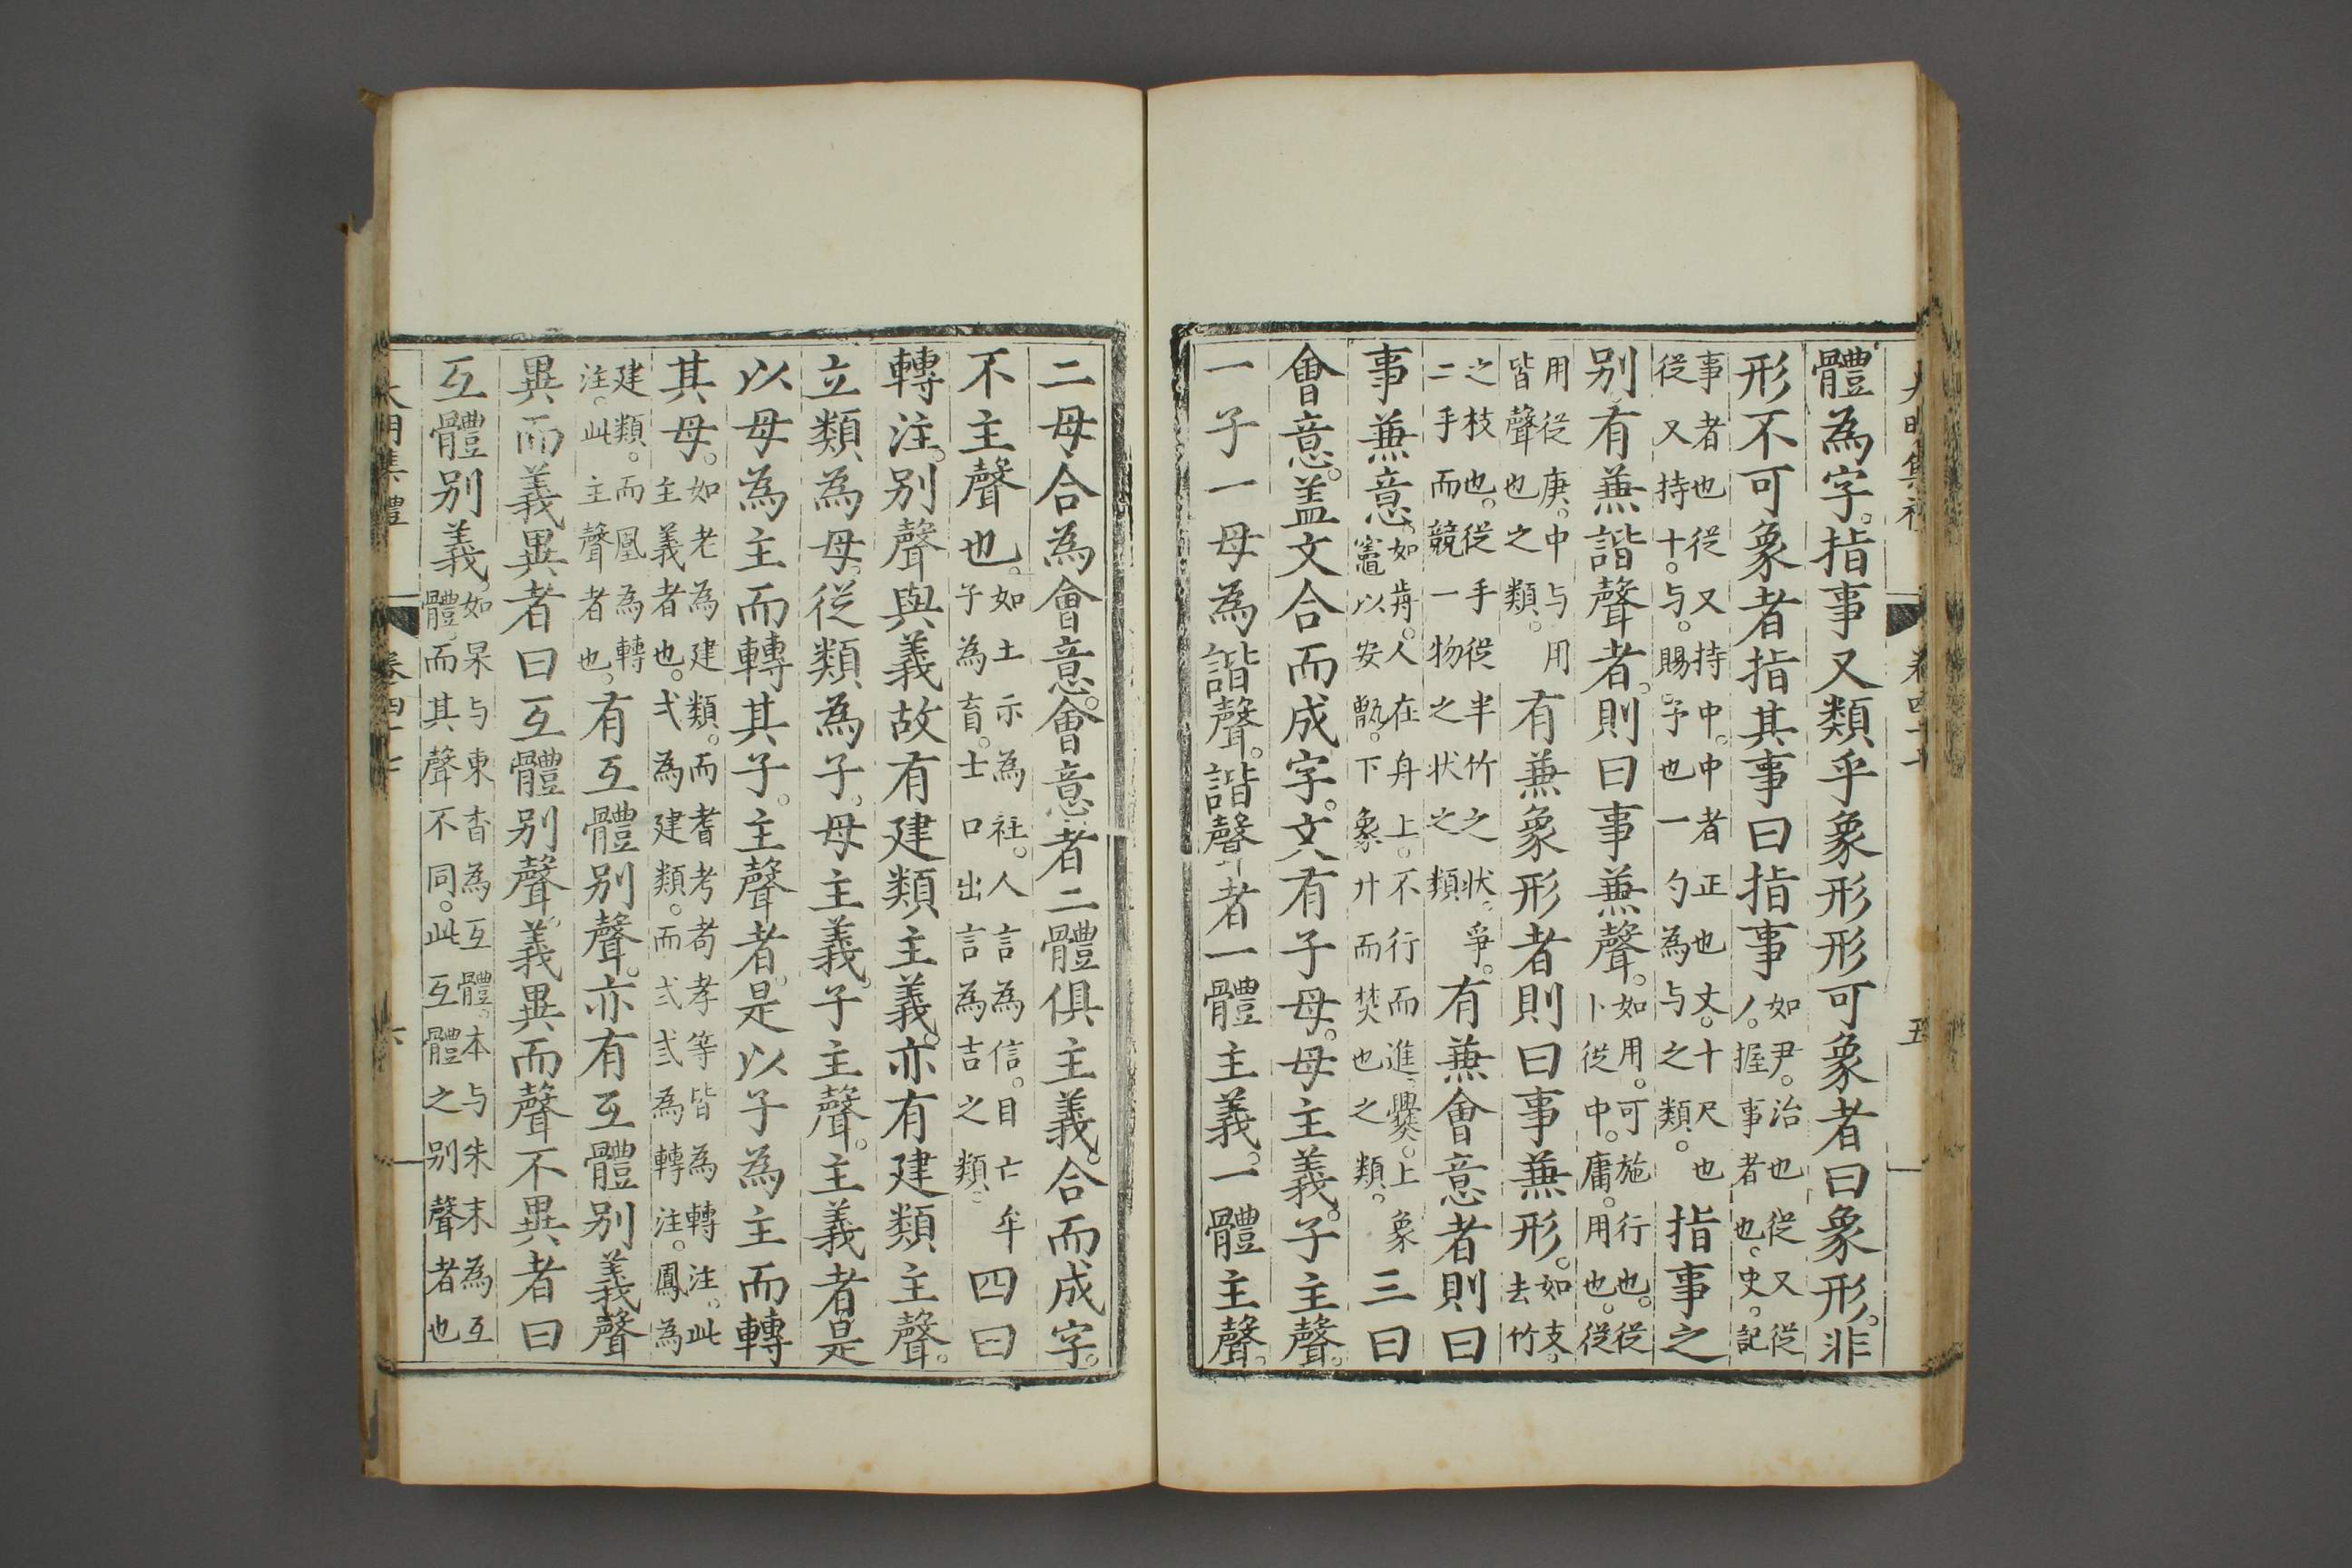 大明集禮 卷四十七 五
體為字。指事又類乎象形形可象者曰象形。非
形不可象者指其事曰指事如尹。治也从又从丿。握事者也。史。記
事者也從又持中。中者正也丈。十尺也從又持十。与。賜予也一勺為与之類。指事之
別有兼諧聲者。則曰事兼聲。如用。可施行也。從卜從中。庸。用也。從
用從庚。中与用皆聲也之類。有兼象形者則曰事兼形。如支。去竹
之枝也。從手從半竹之状。爭。二手而競一物之状之類有兼會意者則曰
事兼意。如歬。人在舟上。不行而進。爨。上象䰝以安甑。下象廾而焚也之類。三曰
會意。盖文合而成字。文有子母。母主義。子主聲。
一子一母為諧聲。諧聲者一體主義。一體主聲。
二母合為會意。會意者二體俱主義。合而成字。
不主聲也。如土示為社。人言為信。目亡牟子為盲。士口出言為吉之類。四曰
轉注。別聲與義故有建類主義。亦有建類主聲。
立類為母。從類為子。母主義。子主聲。主義者是
以母為主而轉其子。主聲者。是以子為主而轉
其母。如老為建類。而耆考耇孝等皆為轉注。此主義者也。弌為建類。而弍弎為轉注。鳳為
建類。而凰為轉注。此主聲者也。有互體別聲。亦有互體別義聲
異而義異者曰互體別聲。義異而聲不異者曰
互體別義。如杲与東杳為互體。本与朱末為互體。而其聲不同。此互體之別聲者也
大明集禮 卷四十七 六